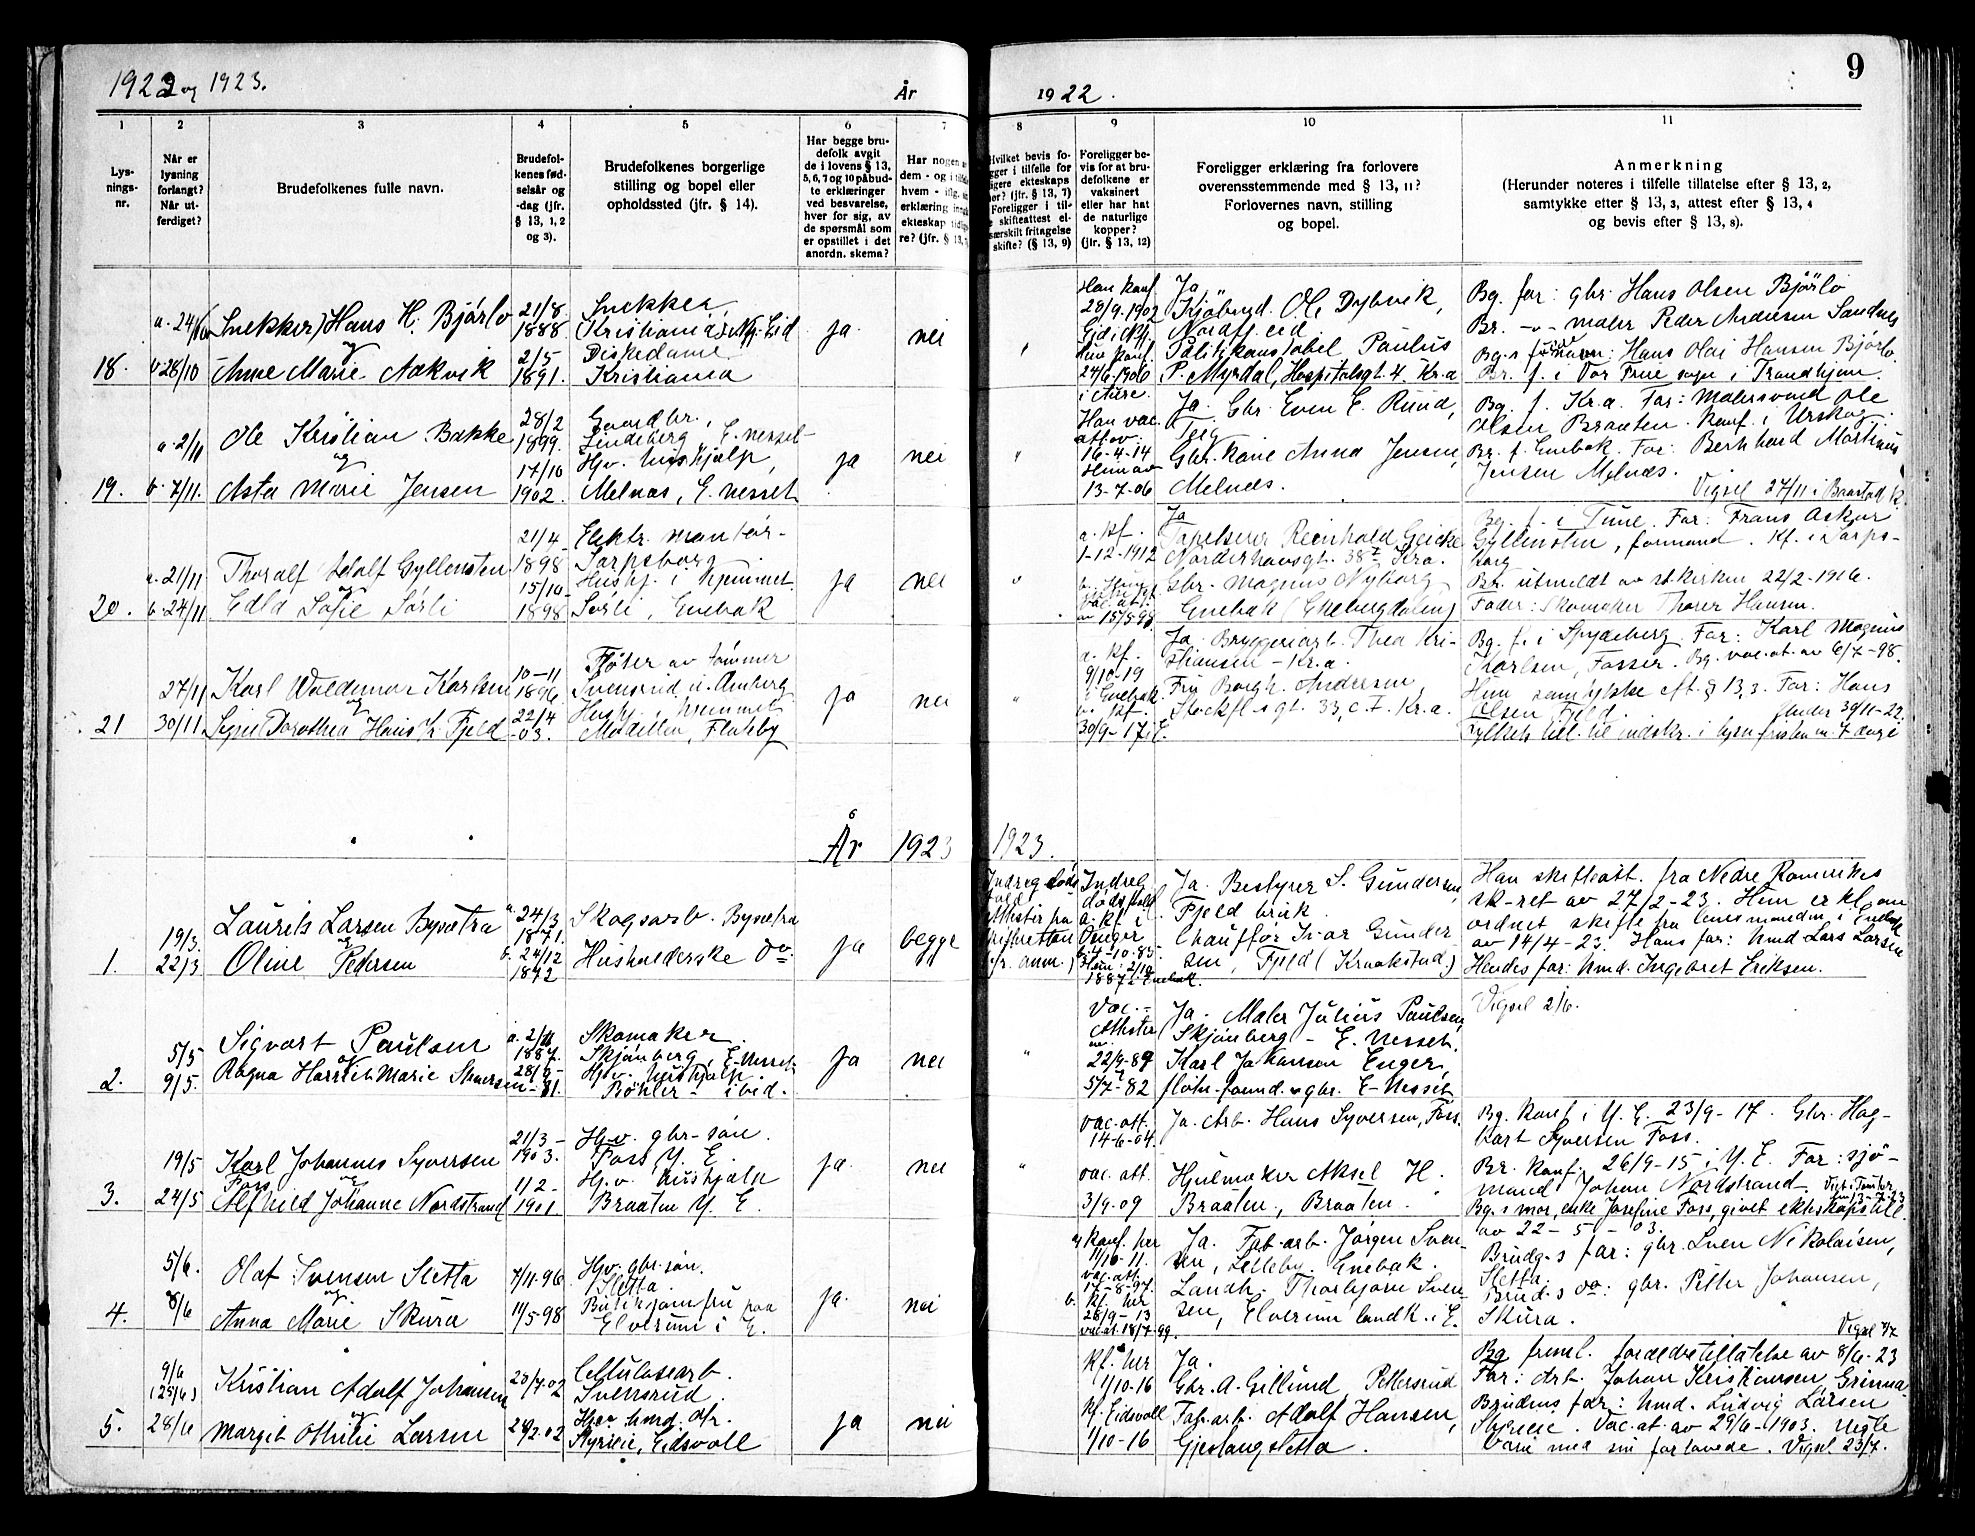 1922 og 1923.
År
1922.
9
1
2
3
4
5
6
7
8
9
10
11
Lys-
nings-
nr.
Når er
lysning
forlangt?
Når ut-
ferdiget?
Brudefolkenes fulle navn.
Brudefol-
kenes fød-
selsår og
-dag (jfr.
§ 13, 1, 2
og 3).
Brudefolkenes borgerlige
stilling og bopel eller
opholdssted (jfr. § 14).
Har begge bru-
defolk avgit
de i lovens § 13,
5, 6, 7 og 10 påbud-
te erklæringer
ved besvarelse,
hver for sig, av
de spørsmål som
er opstillet i det
anordn. skema?
Har nogen
dem - og i
hvem - iflg.
erklæring
ekteskap
re? (jfr. § 13,
Hvilket bevis fo-
i tilfelle for
ekteskaps
(jfr. § 13, 7)
Foreligger i til-
skifteattest el-
særskilt fritagelse
skifte? (§ 13, 9)
Foreligger be-
vis for at bru-
defolkene er
vaksinert
eller har hat
de naturlige
kopper?
(jfr. § 13, 12)
Foreligger erklæring fra forlovere
overensstemmende med § 13, 11?
Forlovernes navn, stilling
og bopel.
Anmerkning
(Herunder noteres i tilfelle tillatelse efter § 13, 2,
samtykke efter § 13, 3, attest efter § 13, 4
og bevis efter § 13, 8).
18.
a. 24/10
b. 28/10
(Snekker) Hans H. Bjørlo
og
Anne Marie Aakvik
21/8
1888.
2/5
1891.
Snekker,
(Kristiania) Nfj. Eid
Diskedame
Kristiania
ja
nei
Han konf.
28/9-1902
Eid i Nfj.
Hun konf.
24/6-1906
i Aure.
Ja
Ole Dybvik,
Nordfj. eid
Politikonstabel Paulus
P. Myrdal, Hospitalsgt. 4. Kr.a
Bg. far: gbr. Hans Olsen Bjørlo
Br. -"- maler Peder Andersen Sandnes
Bg.s navn: Hans Olai Hansen Bjørlo.
Br. f. i Vor Frue sogn i Trondhjem.
19.
a. 2/11
b. 7/11.
Ole Kristian Bakke
og
Asta Marie Jensen
28/2
1899.
17/10
1902.
Gaardbr.,
Lindeberg, E. nesset
Hjv. hushjælp,
Melnæs, E. nesset
ja
nei
Han vac.
att. av
16-4-14
Hun av
13-7-06
Ja. Gbr. Even E. Ruud,
Teig
Gbr. kone Anna Jensen,
Melnæs.
Bg. f. Kr.a. Far: Malersvend Ole
Olsen Braaten. Konf. i Urskog.
Br. f. Enebak. Far: Bernhard Martinius
Jensen Melnæs.
Vigsel 27/11 i Baastad k.
20.
a. 21/11
b. 24/11
Thoralf Adolf Gyllensten
og
Edla Sofie Sørli
21/4-
1898
15/10-
1898
Elektr. montør-
Sarpsborg
Hushj. i hjemmet
Sørli, Enebak
ja
nei
a. kf.
1-12-1912
vac. at.
av 15/5-99
Ja
Tapetserer Reinhold Geicke
Norderhovsgt. 38 I Kr.a.
Gbr. Magnus Nyborg
Enebak (Ekebergdalen)
Bg. f. i Tune. Far: Frans Oskar
Gyllensten, formand. Kf. i Sarps-
borg
Br. utmeldt av st.kirken 22/2-1916.
Fader: Skomaker Thorer Hansen.
21
27/11
30/11
Karl Waldemar Karlsen
og
Signe Dorothea Hans K. Fjeld
10-11
1896.
22/4
-03.
Fløter av tømmer
Svensrud, n. Aneberg
Hushj. i hjemmet
Modellen, Flateby
ja
nei
a. kf.
9/10-19
i Enebak.
b. kf.
30/9-17 i E.
Ja. Bryggeriarb. Thea Kri-
stiansen - Kr.a.
Fru Borgh. Andersen,
Stockfl.sgt. 33, c. I. Kr.a.
Bg. f. i Spydeberg. Far: Karl Magnus
Karlsen, Fosser. Bg. vac. at. av 6/7-98.
Hun samtykke eft. § 13, 3. Far: Hans
Olsen Fjeld.
Under 30/11-22.
Fylkets till. til indskr. i lysn.fristen m. 7 dage
År 1923
1923.
1.
19/3.
22/3
Laurits Larsen Bysætra
og
Oline Pedersen
a. 24/3
1871.
b. 24/12
1872
Skogsarb. Bysætra
Husholderske do.
ja
begge
Ja. Bestyrer S. Gundersen,
Fjeld bruk.
Chauffør Ivar Gunder
sen, Fjeld (Kraakstad)
Han skifteatt. fra Nedre Romerikes
sk-ret av 27/2-23. Hun erkl. om
ordnet skifte fra lensmanden i Enebak
av 14/4-23. Hans far: Smd Lars Larsen
Hendes far: Smd. Ingebret Eriksen.
2.
5/5
9/5.
Sigvart Paulsen
og
Ragna Harriet Marie Skaarsen
a. 2/11
1887.
28/5-
-81.
Skomaker.
Skjønberg, E. Nesset.
Hjv. hushjælp.
Bøhler - ibid.
ja
nei
Vac.-
Attester
22/9-89
5/7-82
Ja. Maler Julius Paulsen,
(Skjønberg - E. Nesset.
Karl Johansen Enger,
fløtn. formd. og gbr. E-Nesset
Vigsel 2/6.
3.
19/5
24/5
Karl Johannes Syversen
Foss og
Alfhild Johanne Nordstrand
21/3-
1903.
11/2-
1901
Hjv. gbr-søn.
Foss Y. E.
Hj.v. hushjælp
Braaten Y. E.
ja.
nei
vac. att.
14-6-04.
vac. att.
3/9-09
Ja. Arb. Hans Syversen, Foss.
Hjulmaker Aksel H.
Braaten, Braaten.
Bg. konf i Y. E. 23/9-17. Gbr. Hag-
bart Syversen Foss.
Br. konf. 26/9-15 i Y. E. Far: sjø-
mand Johan Nordstrand.
Bg.s mor, enke Josefine Foss, givet ekteskapstill.
av 22-5-03.
4.
5/6.
8/6
Olaf Svensen Sletta
og
Anna Marie Skura
7/11.96
11/5-98
Hjv. gbr. søn.
Sletta.
Butikjomfru paa
Elverum i E.
ja.
nei
a. konf. her
11/10-11.
vac. att.
17-8-97.
b. kf. her
28/9-13
vac. at. 18/7-99.
Ja. Fab-arb. Jørgen Sven-
sen, Lilleby. Enebak.
Landh. Thorbjørn Sven-
sen, Elverum landh. i E.
Brudg.s far: gbr. Sven Nikolaisen,
Sletta.
Brud.s do: gbr. Petter Johansen,
Skura.
Vigsel 7/7
5.
9/6
(25/6)
28/6
Kristian Adolf Johansen
og
Margit Othilie Larsen
20/7-02
24/2.02
Cellulosearb.
Svensrud.
Hjv. Smd. dtr.
Styrieie, Eidsvoll
ja
nei
Kf. her
1/10-16
Kf. Eidsvoll
1/10-16
Ja.
Gbr. A. Gillund Pettersrud
Fab. arb. Adolf Hansen,
Gjeslangsletta.
Bg. freml. forældretillatelse av 8/6-23
Far: Arb. Johan Kristiansen Grinna
Brudens far: Smd. Ludvig Larsen
Styrieie. Vac. at. av 29/6-1903. Negte
være med sin forlovede. Vigsel 23/7.